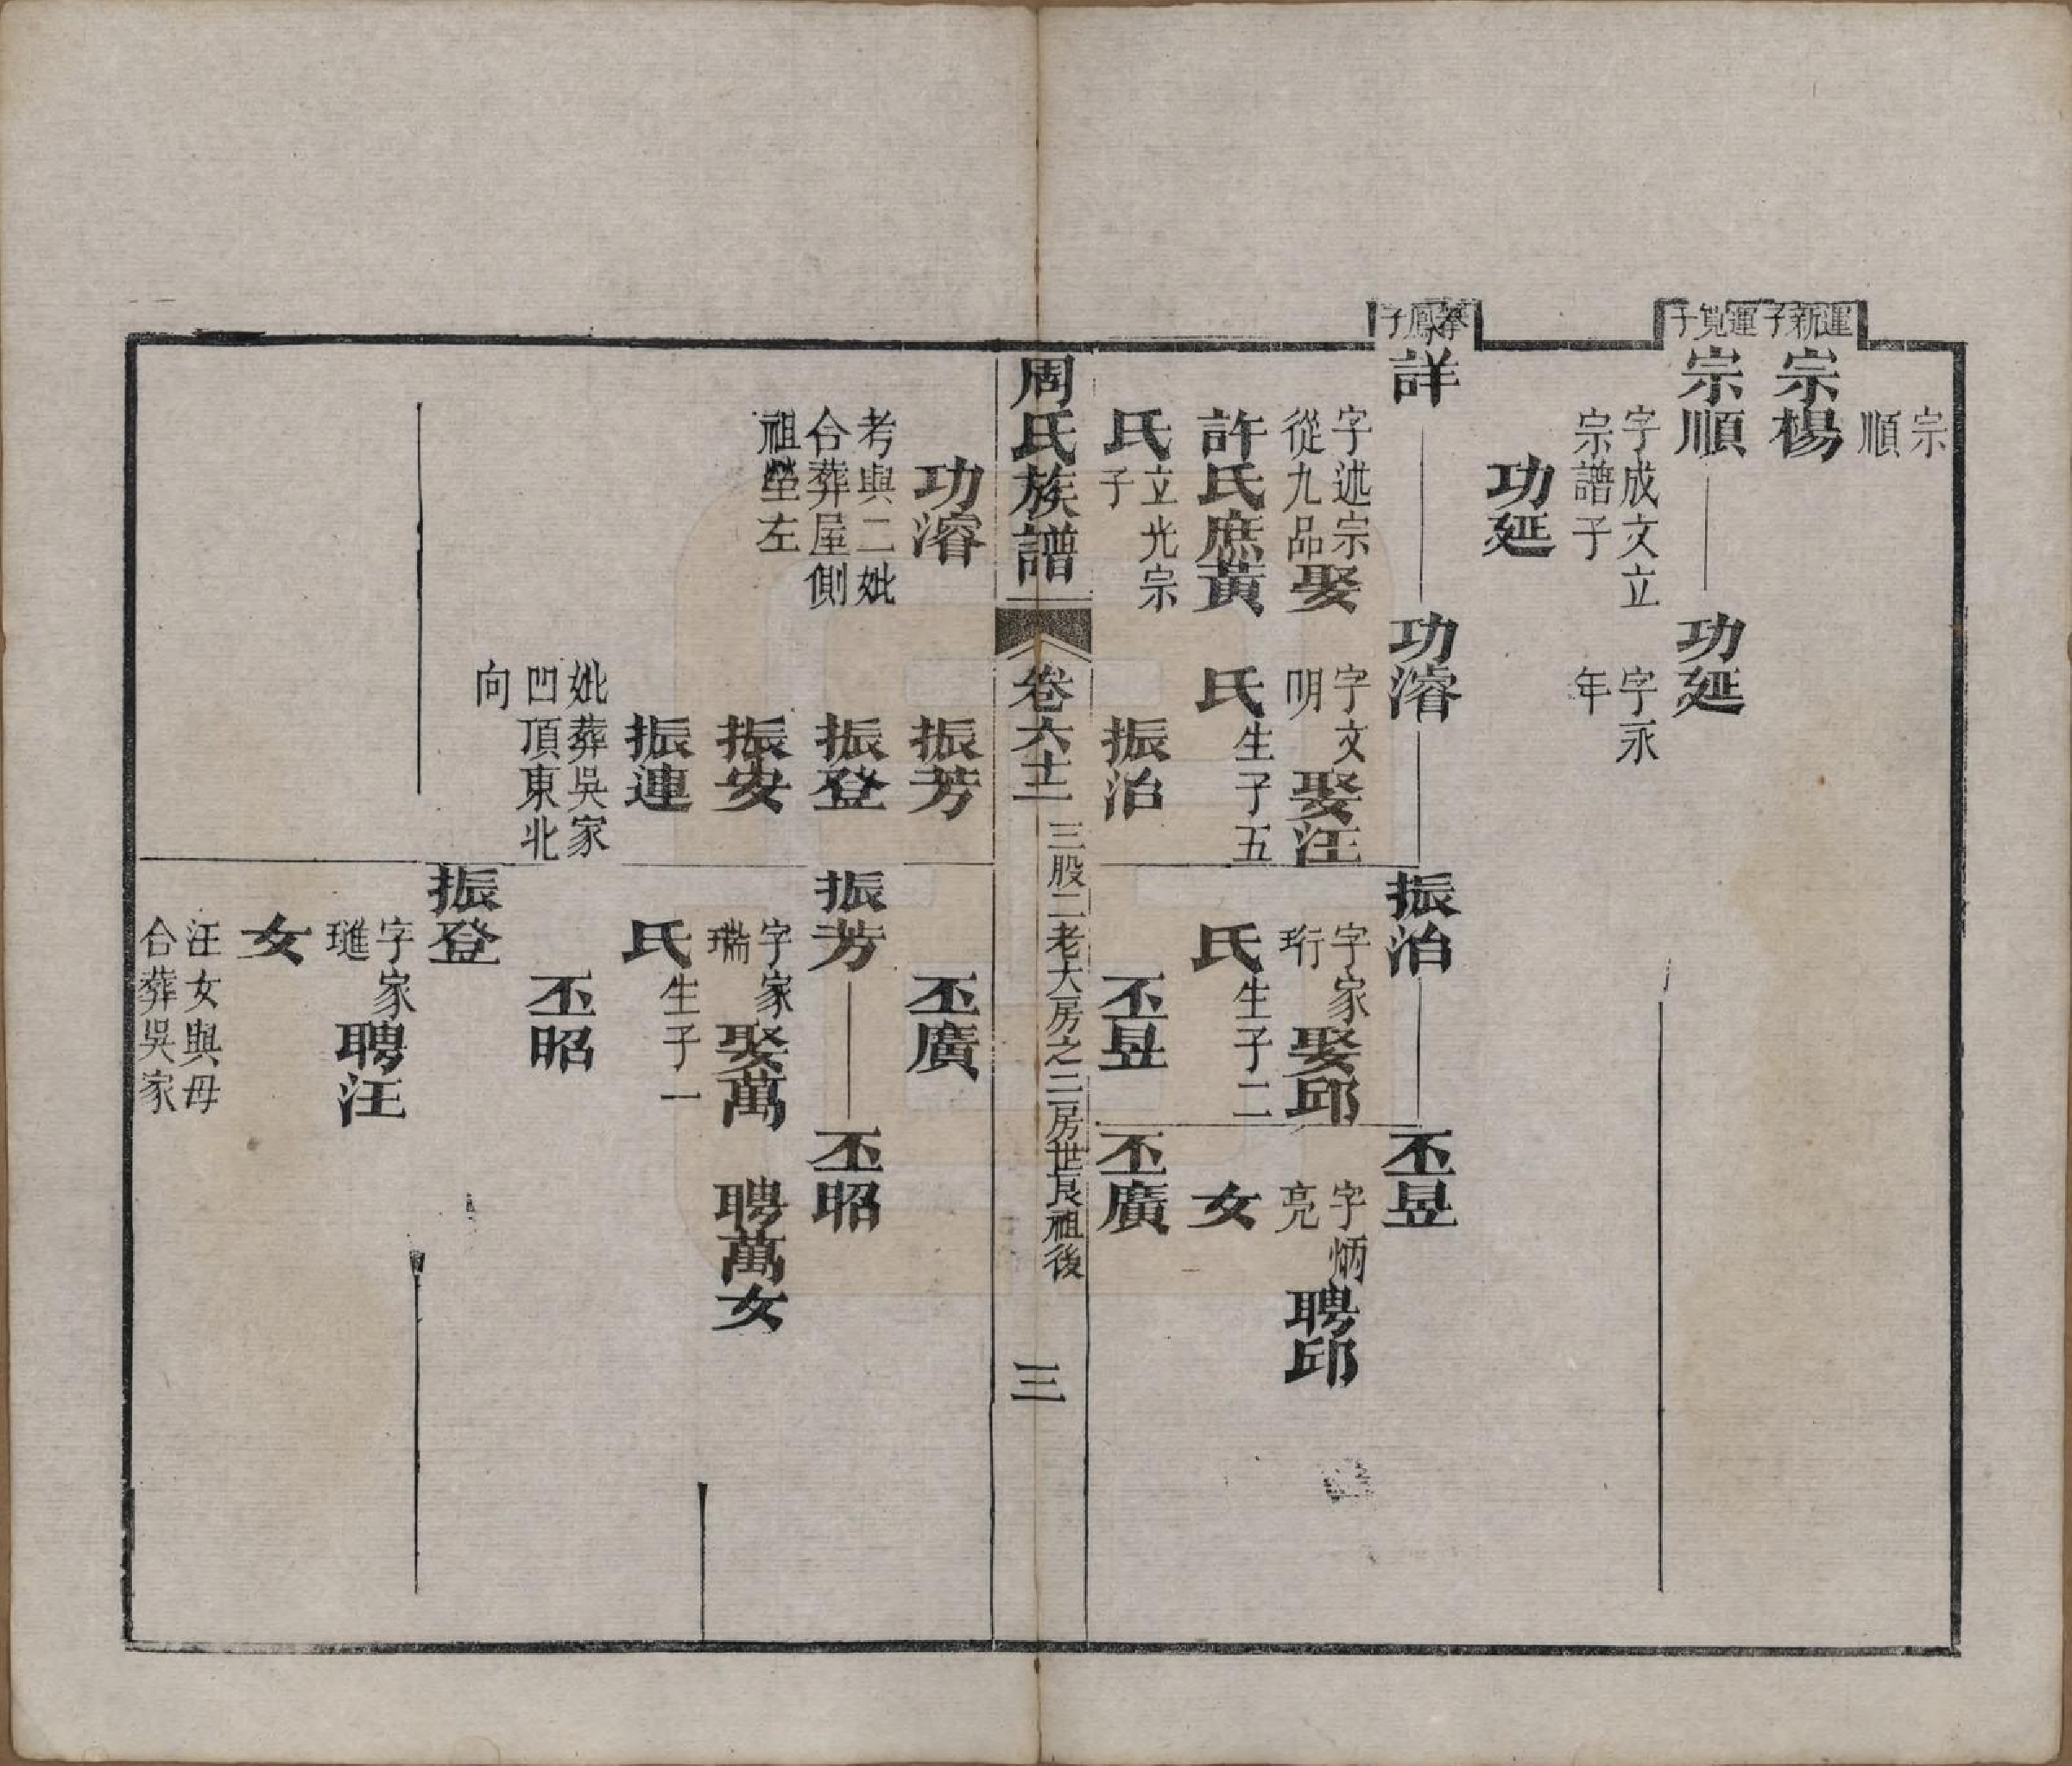 宗
順
運新子
宗楊
運覓子
宗順
字成文立
宗譜子
功延
字永
年
功延
詳
字述宗
從九品娶
許氏庶黃
氏立光宗
子
功濬
字文
明娶汪
氏生子五
振治
振治
字家
珩娶邱
氏生子二
丕昱
丕昱
字炳
亮聘邱
女
丕廣
周氏族譜
卷六十二
三股二老大房之二房世良祖後
三
功濬
考與二妣
合葬屋側
祖塋左
振芳
振登
振安
振連
妣葬吳家
凹頂東北
向
丕廣
振芳
字家
瑞娶萬
氏生子一
丕昭
丕昭
聘萬女
振登
字家
璡聘汪
女
汪女與母
合葬吳家